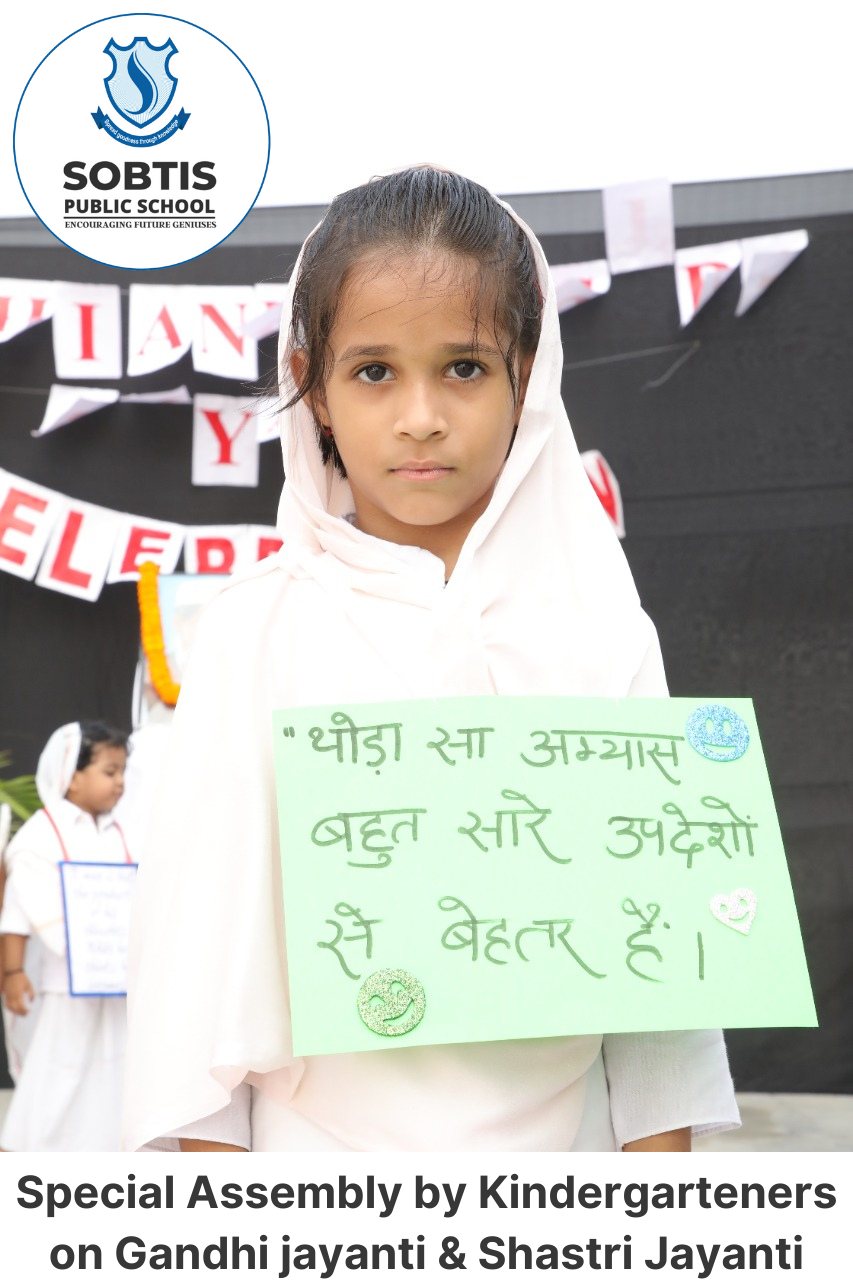 Spread goodness through knowledge
SOBTIS
PUBLIC SCHOOL
ENCOURAGING FUTURE GENIUSES
I A N
Y
ELEBR
"थोड़ा सा अभ्यास
बहुत सारे उपदेशों
से बेहतर हैं।
Special Assembly by Kindergarteners
on Gandhi jayanti & Shastri Jayanti